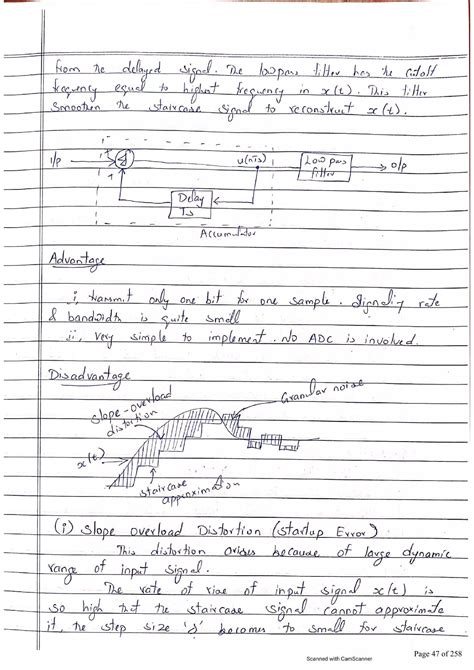 from the delayed signal. The lowpass filter has the cutoff
frequency equal to highest frequency in x(t). This filter
smoothen the staircase signal to reconstruct x(t).
I/P
+
+
Σ
u(nTs)
Low pass
filter
O/P
Delay
Ts
Accumulator
Advantage
i, transmit only one bit for one sample. Signaling rate
& bandwidth is quite small
ii, very simple to implement. No ADC is involved.
Disadvantage
Slope-overload
distortion
Granular noise
x(t)
staircase
approximation
(i) Slope overload Distortion (startup Error)
This distortion arises because of large dynamic
range of input signal.
The rate of rise of input signal x(t) is
so high that the staircase signal cannot approximate
it, the step size 'δ' becomes to small for staircase
Page 47 of 258
Scanned with CamScanner